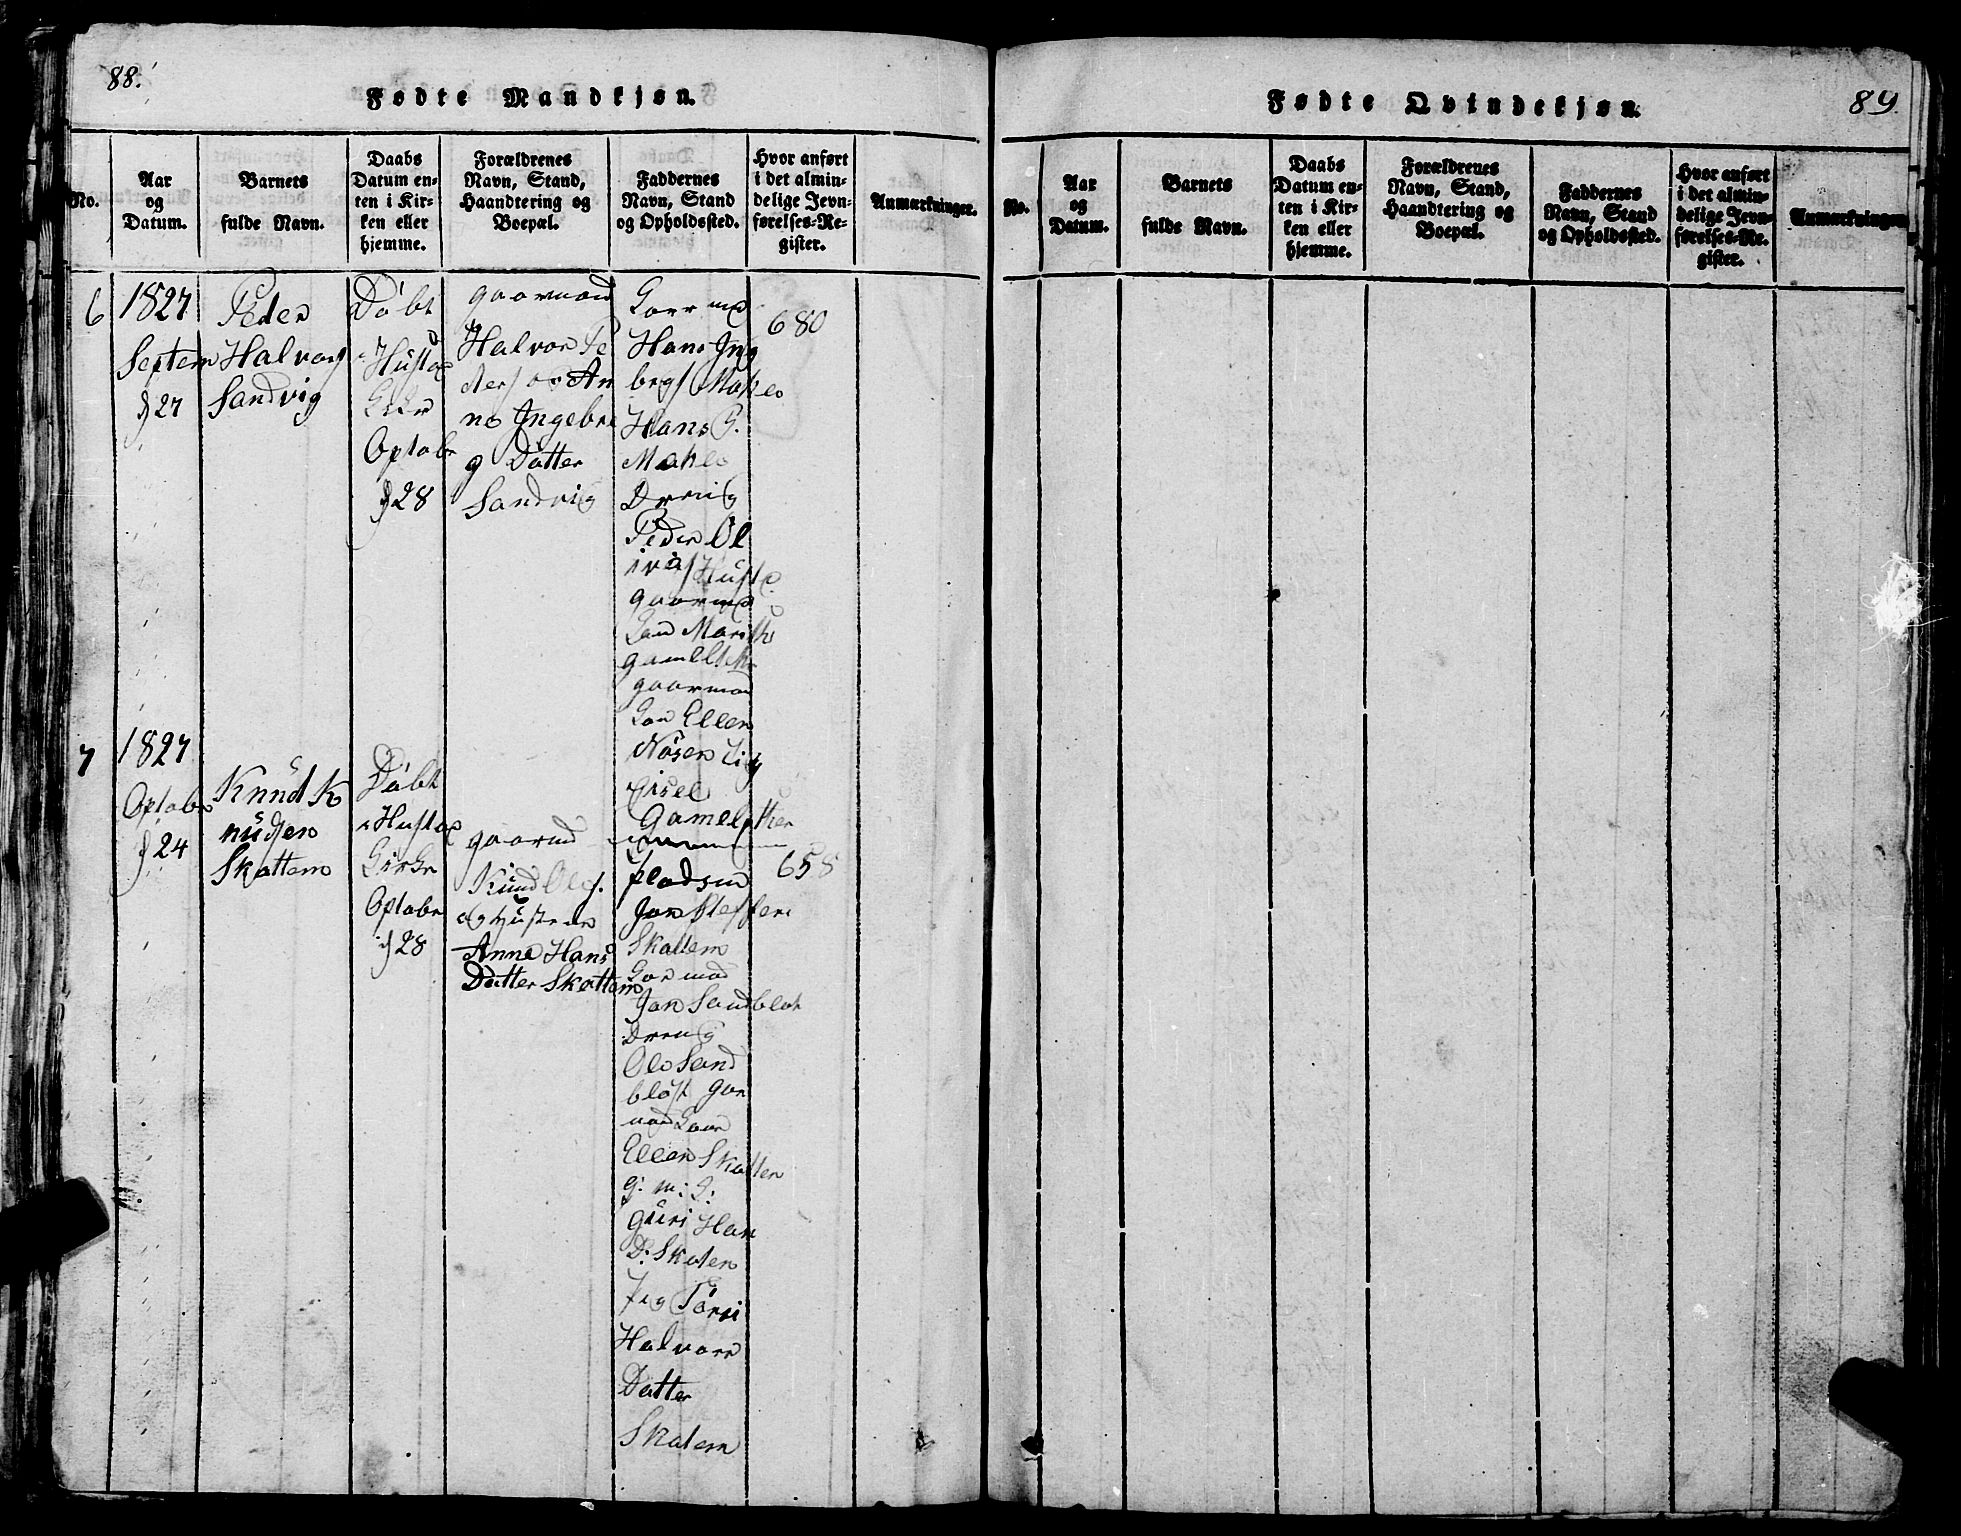 88.
Fødte Mandkjøn.
No.
Aar
og
Datum.
Barnets
fulde Navn.
Daabs
Datum en-
ten i Kir-
ken eller
hjemme.
Forældrenes
Navn, Stand,
Haandtering og
Boepæl.
Faddernes
Navn, Stand
og Opholdssted.
Hvor anført
i det almin-
delige Jevn-
førelses-Re-
gister.
Anmærkninger.
6
1827
Septem
27
Peder
Halvors
Sandvig
Døbt
Hustad
Optobr
28
gaarmand
Halvor Pe
ders og An
ne Ingebre
g Datter
Sandvig
Hans Ing
brgs Mahle
Hans P.
Mahle
Dreng
Peder Ol
ivas Hustad
gaarmd
Marith
gaarmand
Ellen
Nøsen
Eisel
680
7
1827
Optobr
24
Knud K
nudsen
Skottem
Døbt
Hustad
Optobr
28
gaarmd
Knud Ols.
og Hustrue
Anne Hans
Datter Skottem
pladsm
Jon Steffen
Skottem
Jon Sandblot
Dreng
Ole Sand
bløst
Ellen Skotten
g: m:
guri Han
D. Skoten
Halvors
Datter
Skotem
658
Fødte Qvindekjøn.
89.
No.
Aar
og
Datum.
Barnets
fulde Navn.
Daabs
Datum en-
ten i Kir-
ken eller
hjemme.
Forældrenes
Navn, Stand,
Haandtering og
Boepæl.
Faddernes
Navn, Stand
og Opholdssted.
Hvor anført
i det almin-
delige Jevn-
førelses-Re-
gister.
Anmærkninger